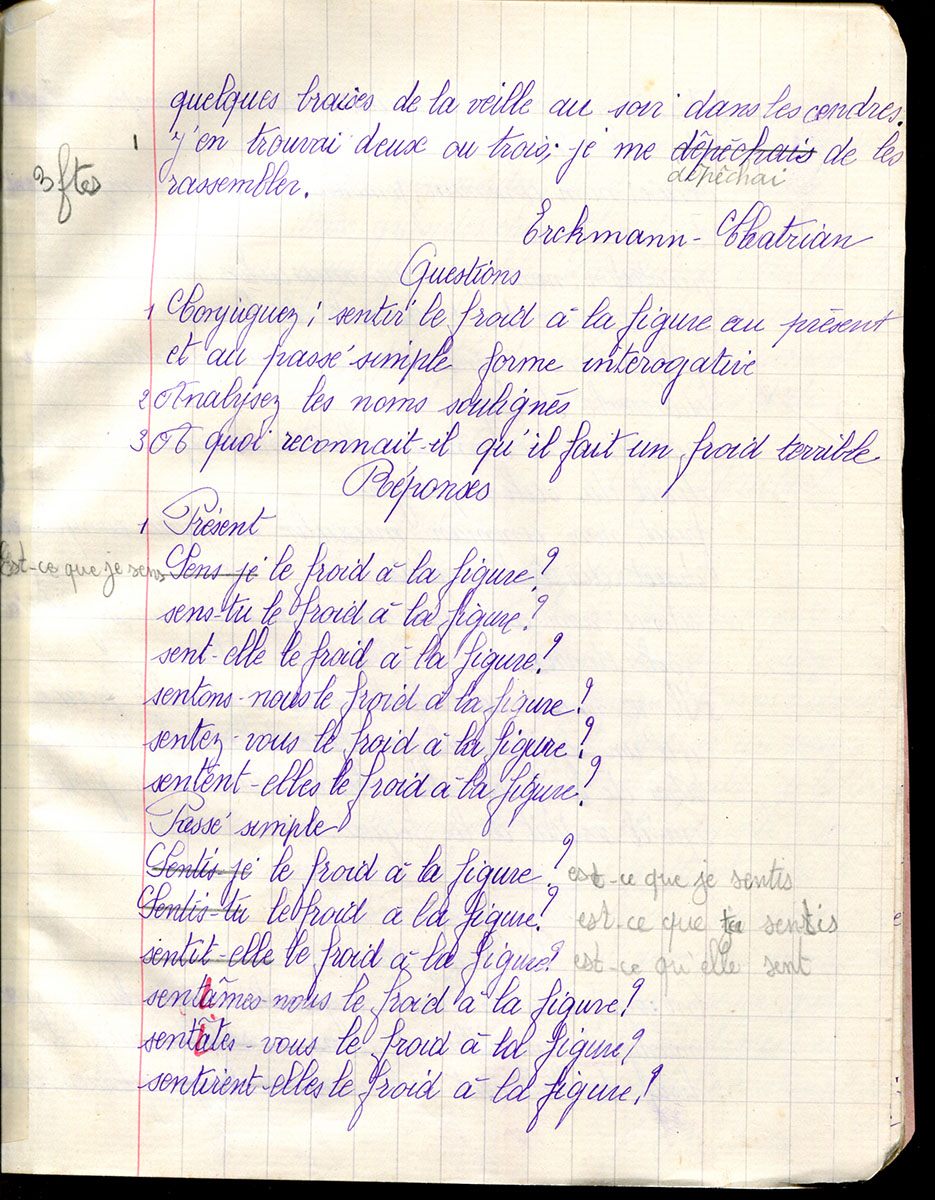 quelques braises de la veille au soir dans les cendres.
1
j'en trouvai deux ou trois; je me dêpêchais de les
3 ftes
dêpêchai
rassembler.
Erckmann-Chatrian
Questions
1 Conjuguez; sentir le froid à la figure au présent
et au passé simple forme interogative
2 Analysez les noms soulignés
3 A quoi reconnait-il qu'il fait un froid terrible
Réponses
1 Présent
Est-ce que je sens Sens-je le froid à la figure?
sens-tu le froid à la figure?
sent-elle le froid à la figure?
sentons-nous le froid à la figure?
sentez-vous le froid à la figure?
sentent-elles le froid à la figure?
Passé simple
Sentis-je le froid à la figure? est-ce que je sentis
Sentis-tu le froid à la figure? est-ce que tu sentis
sentit-elle le froid à la figure? est-ce qu'elle sent
sentâmes-nous le froid à la figure?
sentâtes-vous le froid à la figure?
sentirent-elles le froid à la figure?